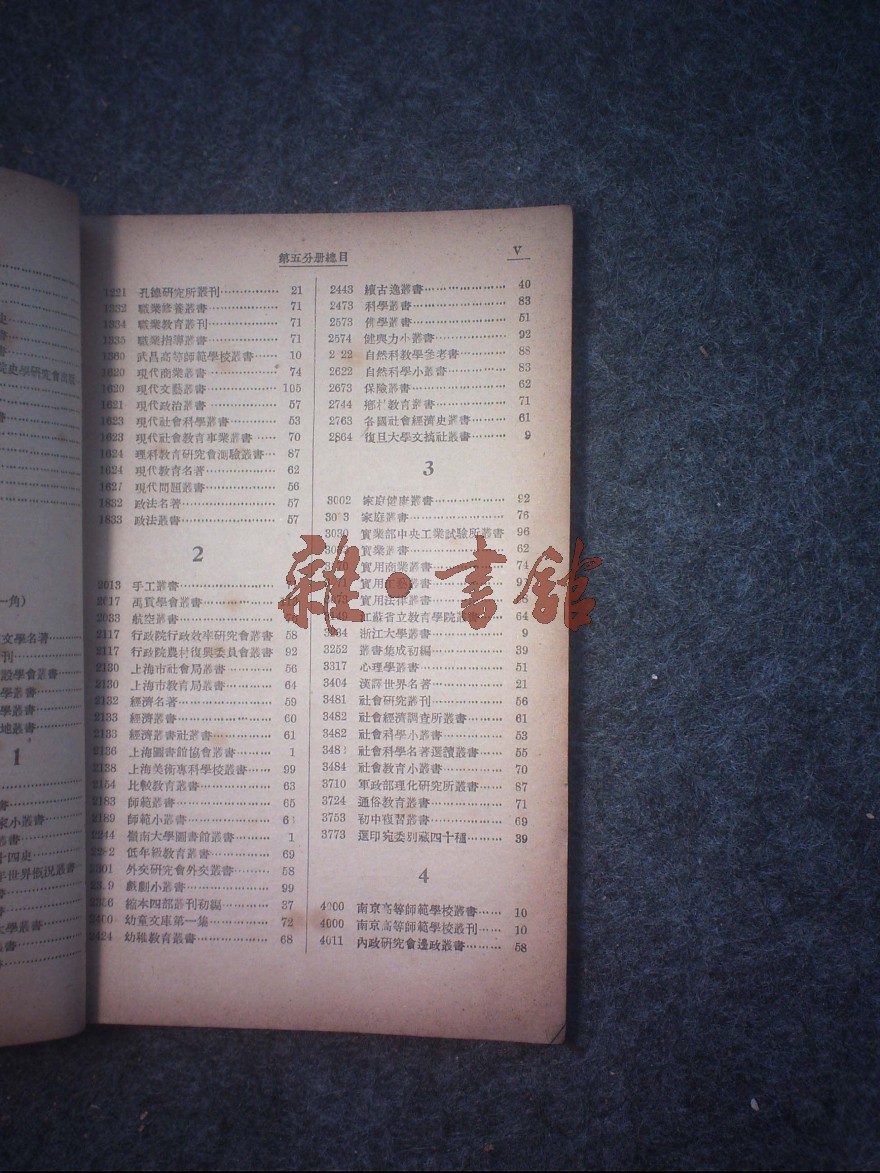 史
書
書
院史學研究會叢書
書
一角）
文學名著
刊
設學會叢書
學叢書
學叢書
地叢書
1
書
家小叢書
叢書
十四史
年世界概況叢書
書
文學叢書
叢書
書
第五分册總目
V
1221 孔德研究所叢刊 21
1332 職業修養叢書 71
1334 職業教育叢刊 71
1335 職業指導叢書 71
1360 武昌高等師範學校叢書 10
1620 現代商業叢書 74
1620 現代文藝叢書 105
1621 現代政治叢書 57
1623 現代社會科學叢書 53
1623 現代社會教育事業叢書 70
1624 理科教育研究會測驗叢書 87
1624 現代教育名著 62
1627 現代問題叢書 56
1832 政法名著 57
1833 政法叢書 57
2
2013 手工叢書
2017 禹貢學會叢書
2033 航空叢書
2117 行政院行政效率研究會叢書 58
2117 行政院農村復興委員會叢書 92
2130 上海市社會局叢書 56
2130 上海市教育局叢書 64
2132 經濟名著 59
2133 經濟叢書 60
2133 經濟叢書社叢書 61
2136 上海圖書館協會叢書 1
2138 上海美術專科學校叢書 99
2154 比較教育叢書 63
2183 師範叢書 65
2189 師範小叢書
2244 嶺南大學圖書館叢書 1
低年級教育叢書 69
2301 外交研究會外交叢書 58
戲劇小叢書 99
縮本四部叢刊初編 37
2400 幼童文庫第一集 72
2424 幼稚教育叢書 68
2443 續古逸叢書 40
2473 科學叢書 83
2573 佛學叢書 51
2574 健與力小叢書 92
自然科教學參考書 88
2622 自然科學小叢書 83
2673 保險叢書 62
2744 鄉村教育叢書 71
2763 各國社會經濟史叢書 61
2864 復旦大學文摘社叢書 9
3
3002 家庭健康叢書 92
家庭叢書 76
3080 實業部中央工業試驗所叢書 96
實業叢書 62
實用商業叢書 74
實用工藝叢書
實用法律叢書
江蘇省立教育學院叢書 64
浙江大學叢書 9
3252 叢書集成初編 39
3317 心理學叢書 51
3404 漢譯世界名著 21
3481 社會研究叢刊 56
3482 社會經濟調查所叢書 61
3482 社會科學小叢書 53
社會科學名著選讀叢書 55
3484 社會教育小叢書 70
3710 軍政部理化研究所叢書 87
3724 通俗教育叢書 71
3753 初中復習叢書 69
3773 選印宛委別藏四十種 39
4
4000 南京高等師範學校叢書 10
4000 南京高等師範學校叢刊 10
4011 內政研究會邊政叢書 58
雜·書館